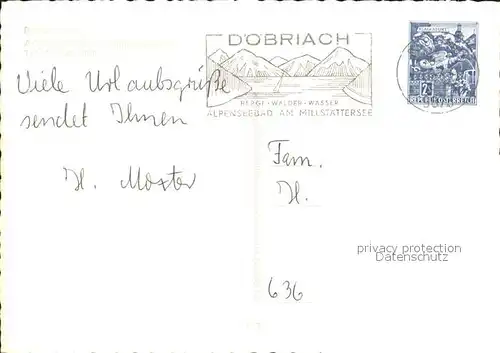 DÖBRIACH
BERGE · WÄLDER · WASSER
ALPENSEEBAD AM MILLSTÄTTERSEE
REPUBLIK ÖSTERREICH
Viele Urlaubsgrüße
sendet Ihnen
H. Moster
Fam.
H.
636
privacy protection
Datenschutz